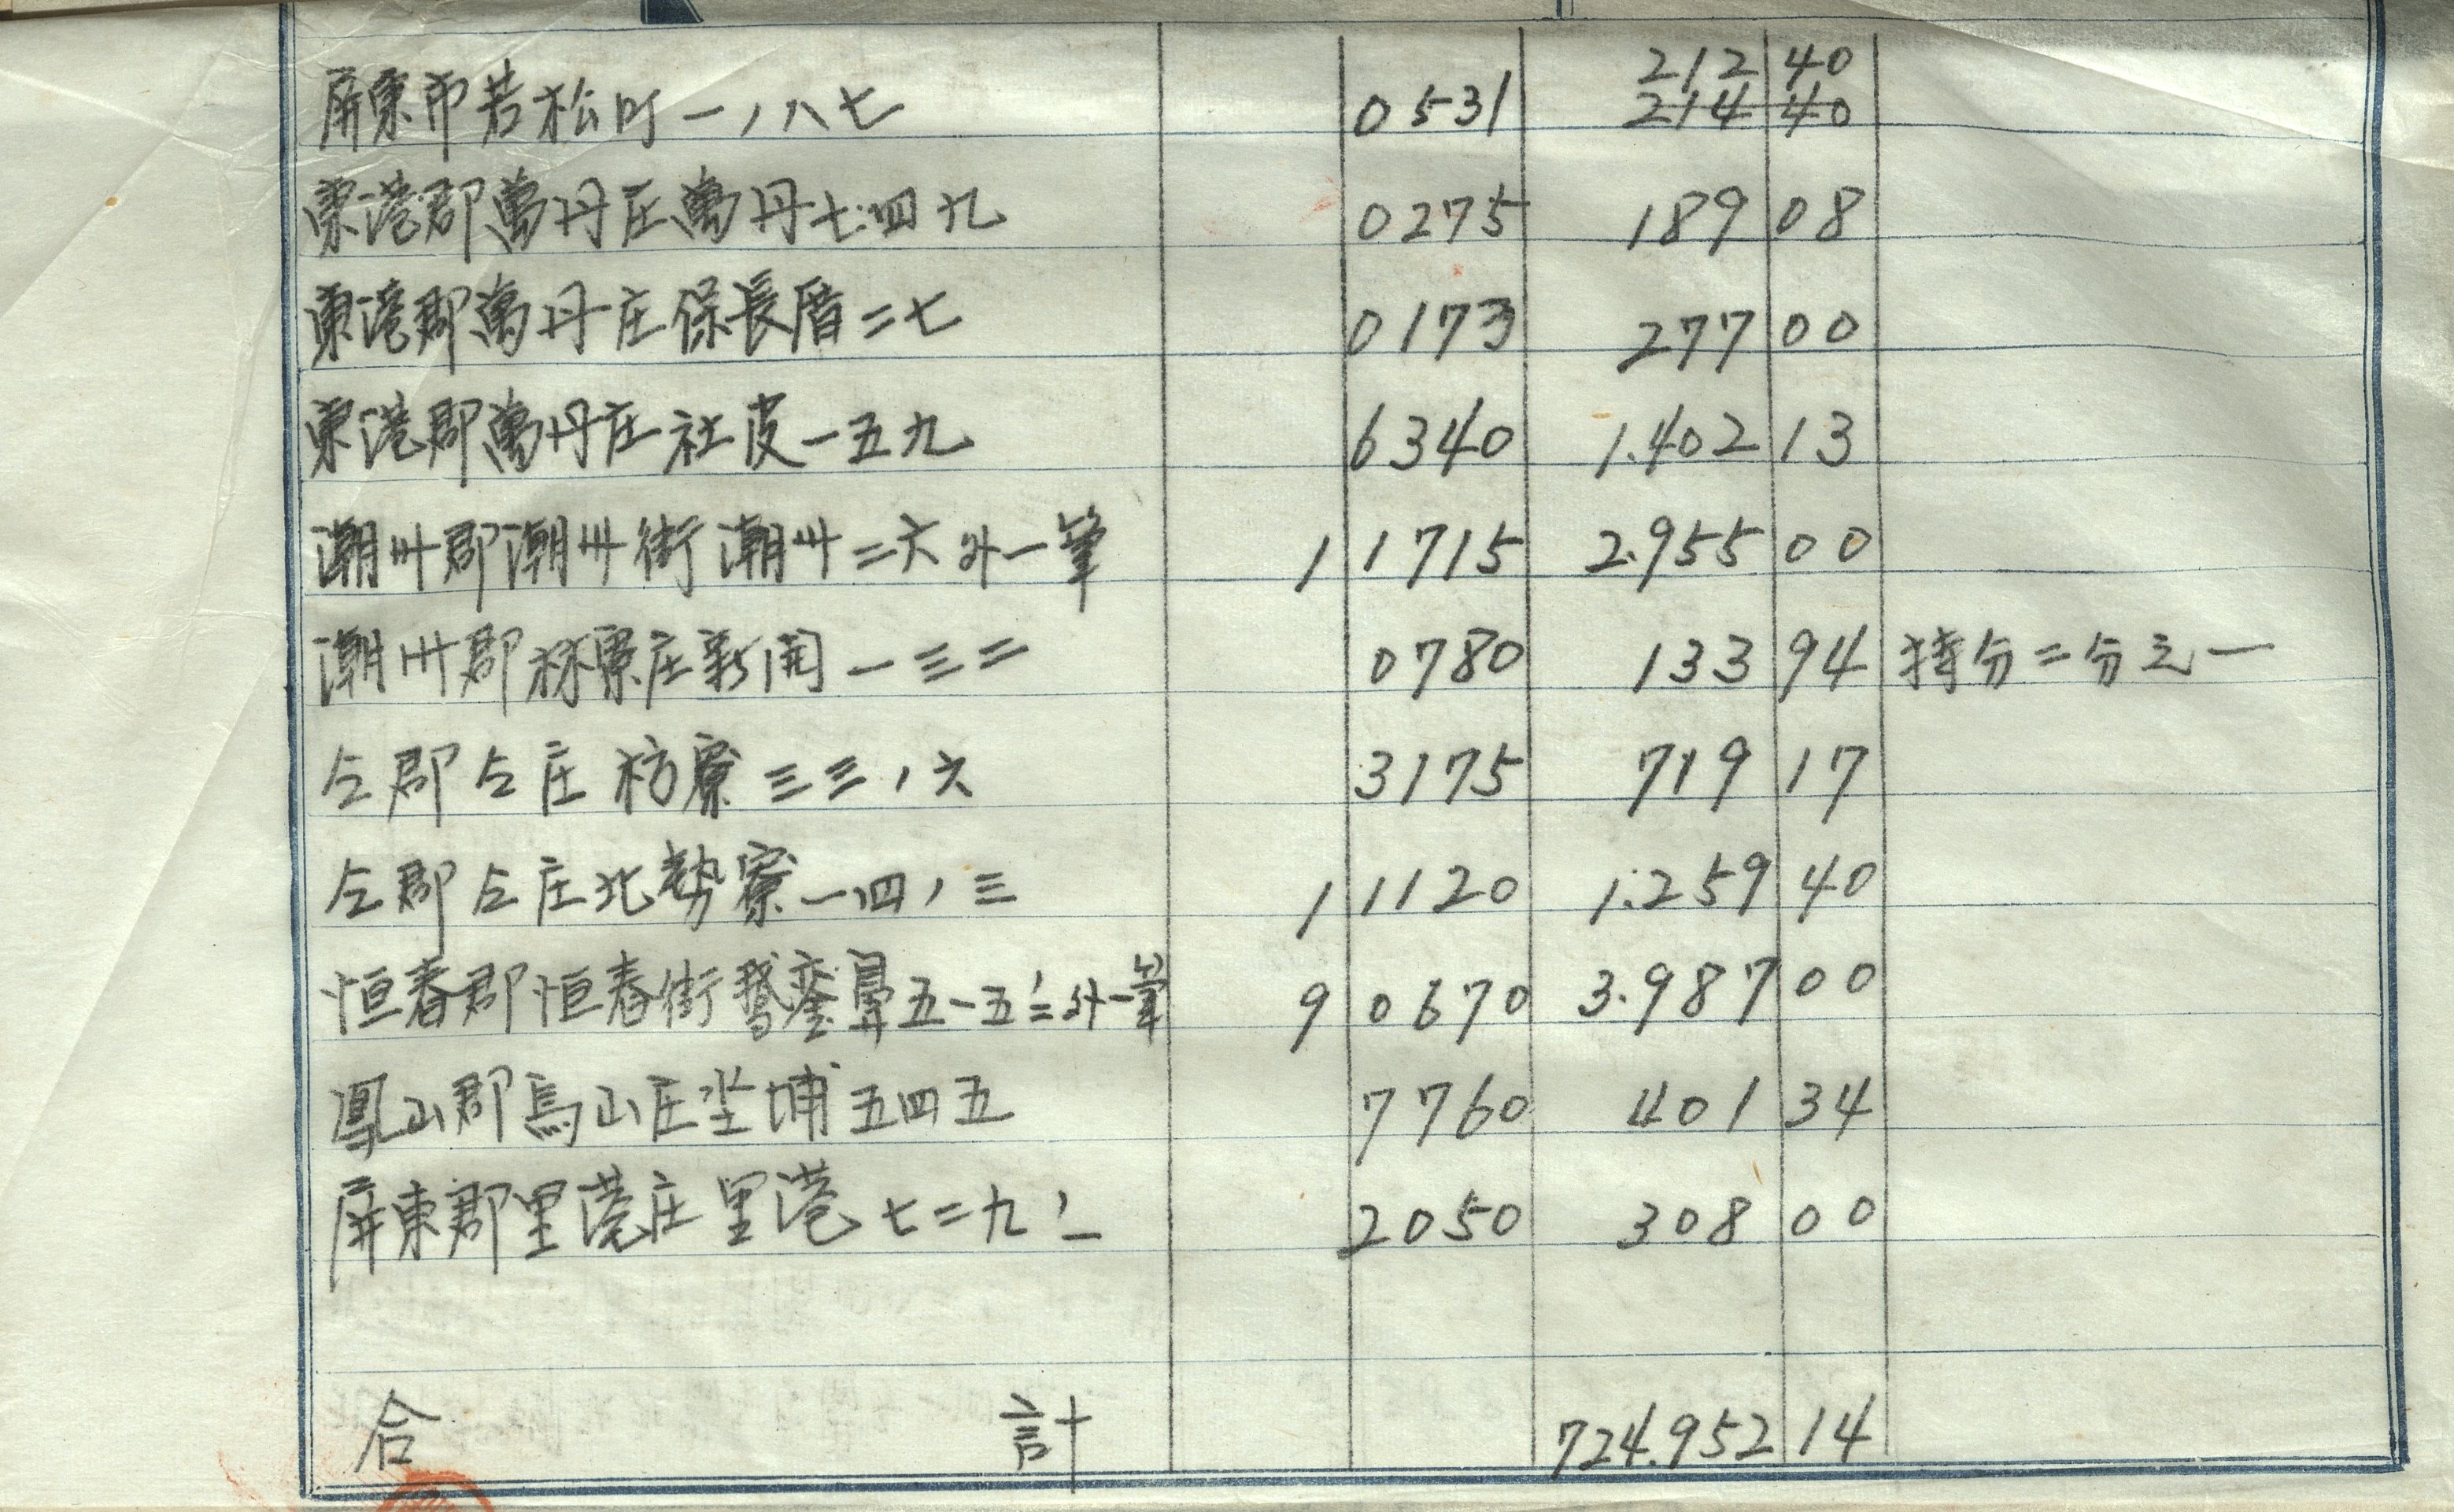 212 40
屏東市若松町一ノ八七 0531 214 40
東港郡萬丹庄萬丹七四九 0275 189 08
東港郡萬丹庄保長厝二七 0173 277 00
東港郡萬丹庄社皮一五九 6340 1.402 13
潮州郡潮州街潮州二六外一筆 1 1715 2.955 00
潮州郡枋寮庄新開一三二 0780 133 94 持分二分之一
仝郡仝庄枋寮三三ノ六 3175 719 17
仝郡仝庄北勢寮一四ノ三 1 1120 1.259 40
恒春郡恒春街鵞鑾鼻五一五ノ二外一筆 9 0670 3.987 00
鳳山郡鳥山庄坔埔五四五 7760 401 34
屏東郡里港庄里港七二九ノ一 2050 308 00
合計 724.952 14